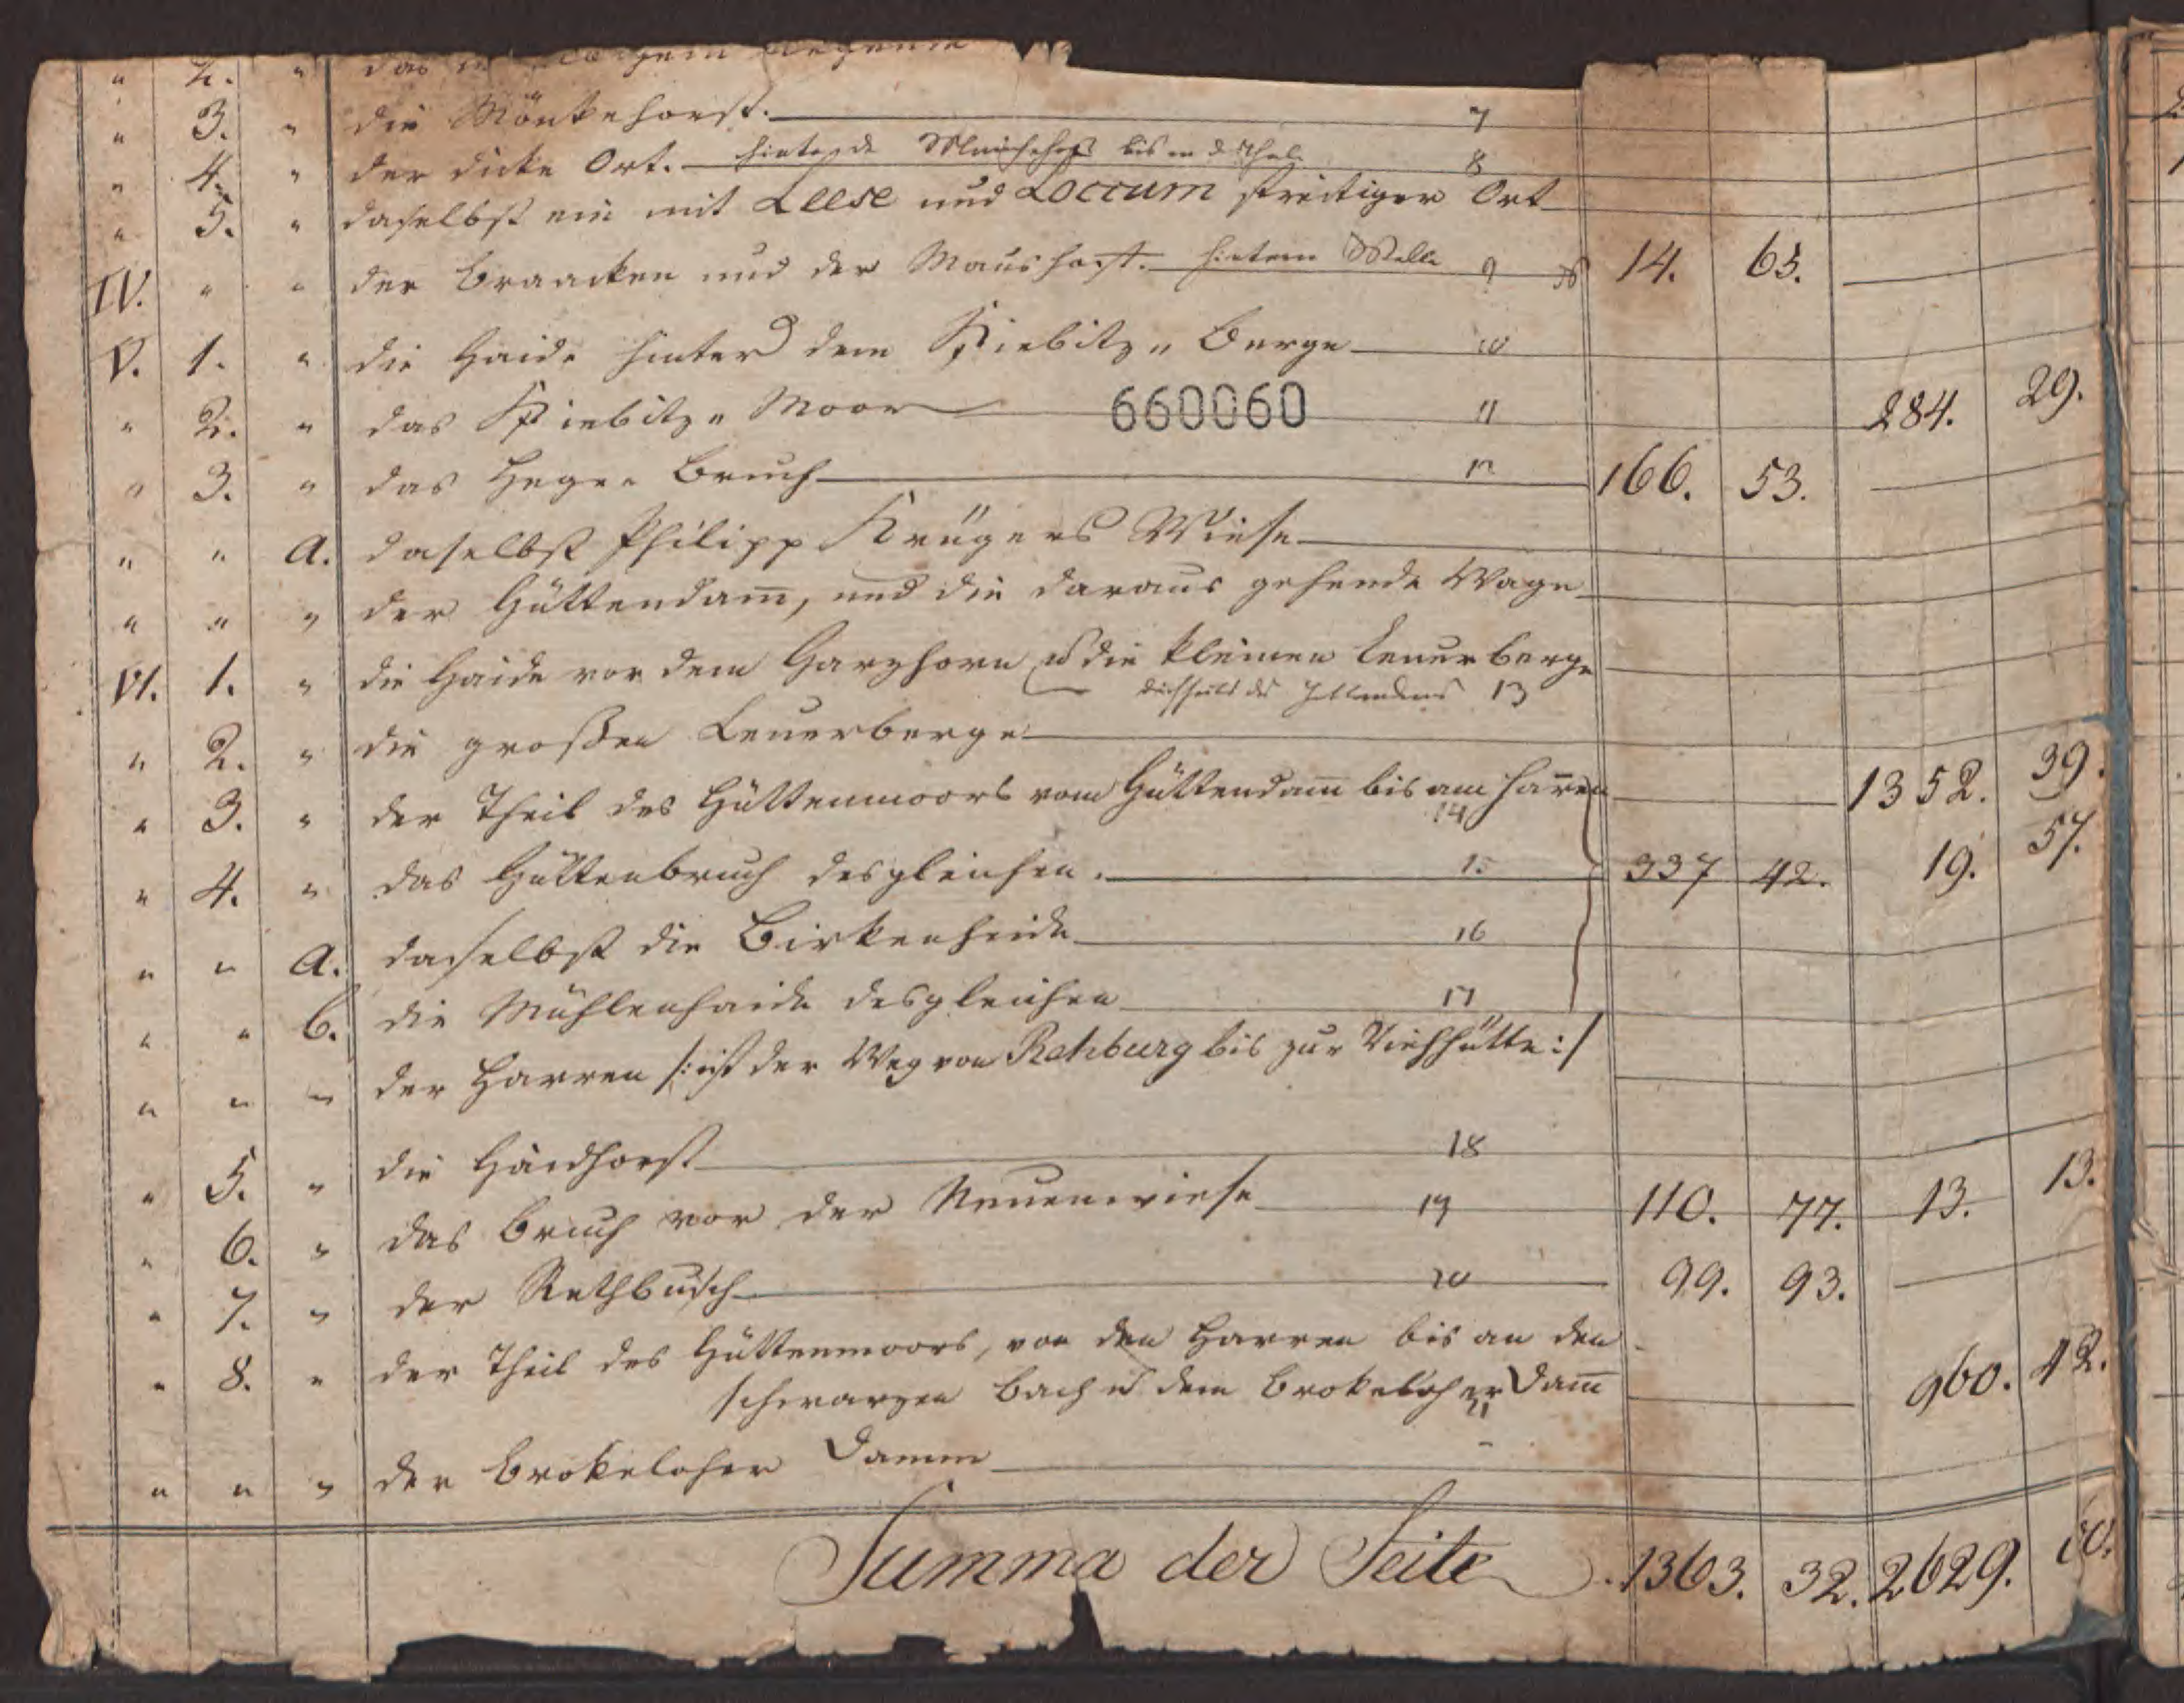 " 2. " das
" 3. " die Mönkehorst. 7
" 4. " der dicke Ort. bis an d 8
" 5. " daselbst ein mit Leese und Loccum streitiger Ort
IV. " " der Braacken und der Maushorst. hinterm Walle 9 14. 65.
V. 1. " die Haide hinter dem Kiebitz " Berge 10
" 2. " das Kiebitz " Moor 660060 11 284. 29.
" 3. " das Heger Bruch 12 166. 53.
" " a. daselbst Philipp Krügers Wiese
" " " der Hüttendam̅, und die daraus gehende Wege
VI. 1. " die Haide vor dem Garzhorn u die kleinen Leuerberge
13
" 2. " die großen Leuerberge
" 3. " der Theil des Hüttenmoors vom Hüttendam̅ bis am Harren 1352. 39.
14
" 4. " das Hüttenbruch desgleichen. 15 337 42. 19. 57.
" " a. daselbst die Birkenheide 16
" " b. die Mühlenhaide desgleichen 17
" " " der Harren /: ist der Weg von Rehburg bis zur Viehhütte :/
" 5. " die Haidhorst 18
" 6. " das Bruch vor der Neuenwiese 19 110. 77. 13. 13.
" 7. " der Rethbusch 20 99. 93.
" 8. " der Theil des Hüttenmoors, von den Harren bis an den
schwarzen Bach u dem Brokeloher Dam̅ 960. 42.
21
" " " der Brokeloher Damm
Summa der Seite 1363. 32. 2629. 60.